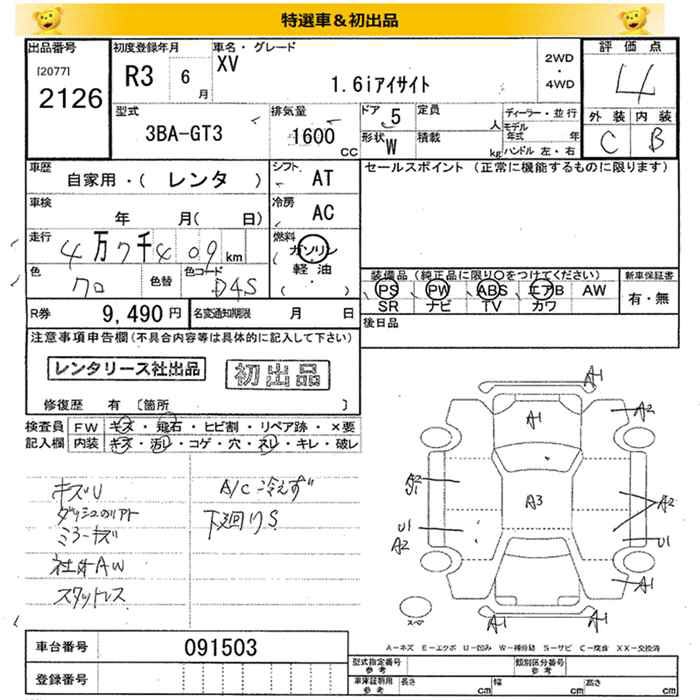 特選車&初出品
出品番号
[2077]
2126
初度登録年月
R3 6月
車名・グレード
XV
1.6iアイサイト
2WD
・
4WD
評価点
4
外装 内装
C B
型式
3BA-GT3
排気量
1600 CC
ドア 5
形状 W
定員 人
積載 kg
ディーラー・並行
モデル年式 年
ハンドル 左・右
車歴
自家用・( レンタ )
シフト AT
セールスポイント (正常に機能するものに限ります)
車検
年 月( 日)
冷房 AC
走行
4万7千409km
燃料
ガソリン
軽油
( ・ )
色
クロ
色替
色コード
D4S
装備品(純正品に限り○をつけてください)
PS PW ABS エアB AW
SR ナビ TV カワ
新車保証書
有・無
R券 9,490円
名変通知期限 月 日
後日品
注意事項申告欄(不具合内容等は具体的に記入して下さい)
レンタリース社出品
初出品
修復歴 有 〔箇所 〕
検査員
記入欄
FW キズ・飛石・ヒビ割・リペア跡・×要
内装 キズ・汚レ・コゲ・穴・スレ・キレ・破レ
キズU
ミラーキズ
社外AW
スタットレス
A/C冷えず
下廻りS
A-1
A-1
A2
A2
A3
A2
U1
A2
U1
A-1
A-1
スペア
A-キズ E-エクボ U-凹み W-補修跡 S-サビ C-腐食 XX-交換済
車台番号 091503
登録番号
型式指定番号
参考
類別区分番号
参考
車庫証明用
参考
長さ cm
幅 cm
高さ cm